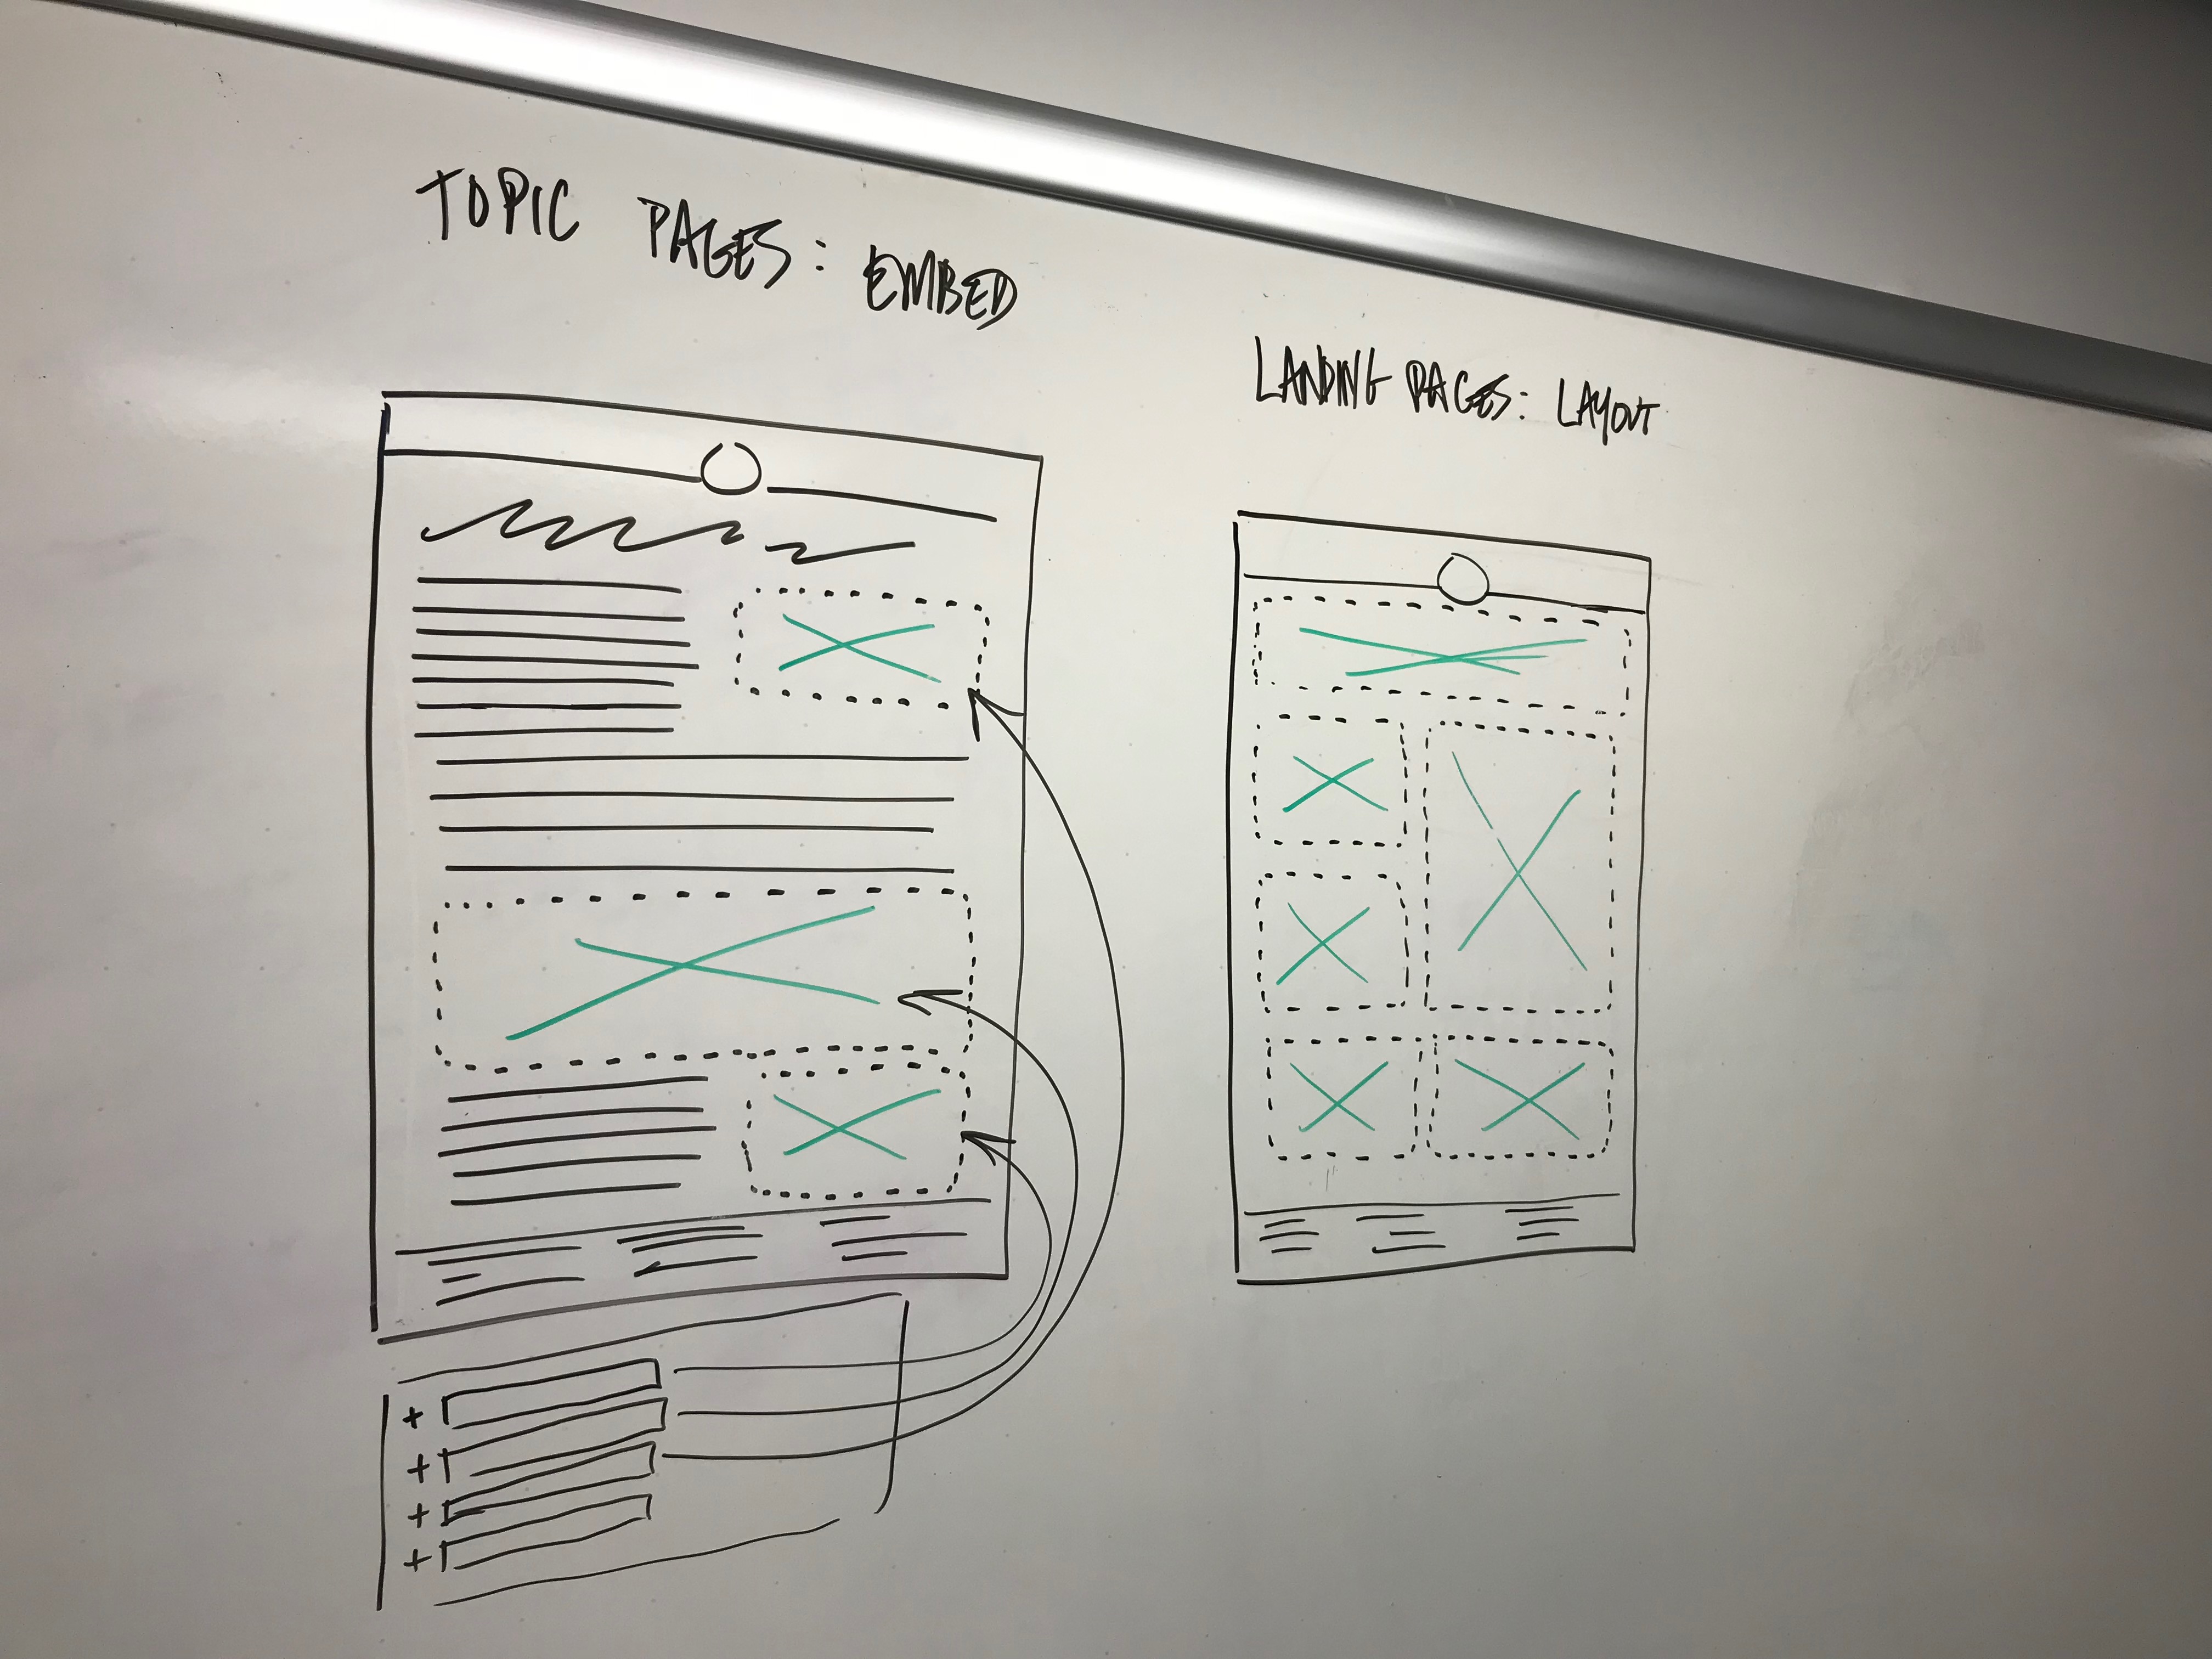 TOPIC PAGES: EMBED
LANDING PAGES: LAYOUT
+
+
+
+